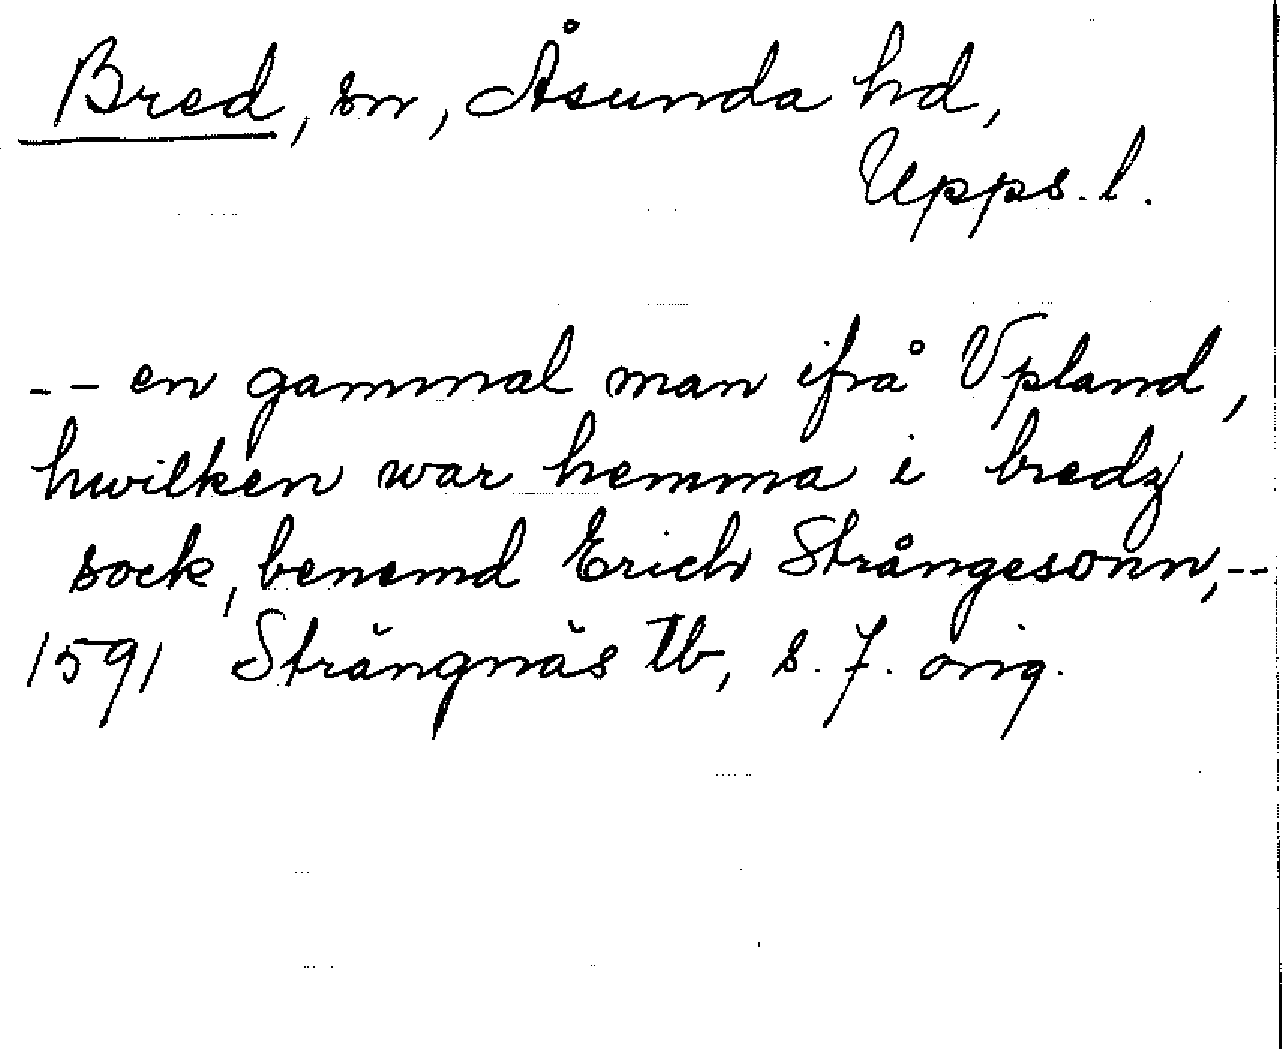 Bred, sn, Åsunda hd,
Upps. l.
-- en gammal man ifrå Vpland,
hwilken war hemma i bredz
sock, benemd Erich Strångesonn, --
1591 Strängnäs Tb, s. 7. orig.